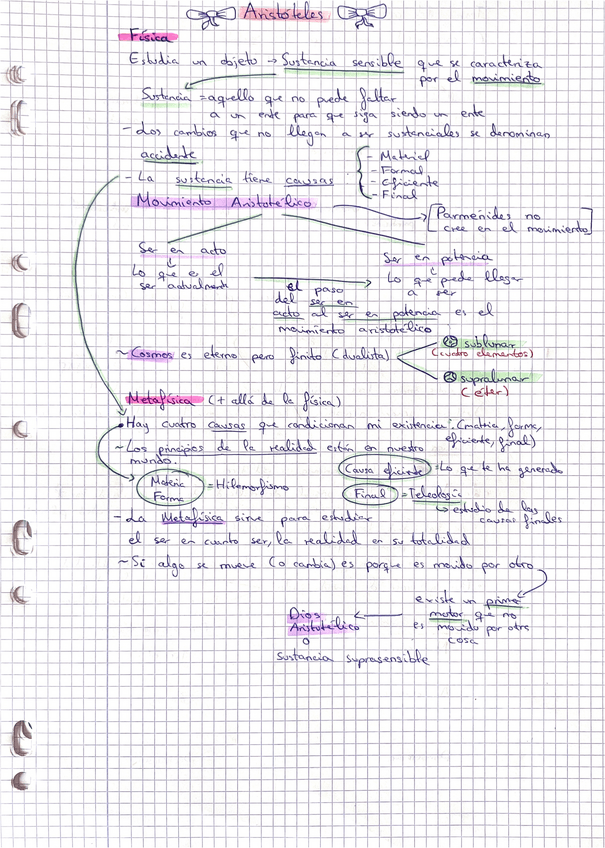 Aristóteles
Física
Estudia un objeto → Sustancia sensible que se caracteriza
por el movimiento
Sustancia = aquello que no puede faltar
a un ente para que siga siendo un ente
- Los cambios que no llegan a ser sustanciales se denominan
accidente
- La sustancia tiene causas
- Material
- Formal
- Eficiente
- Final
Movimiento Aristotélico
Parmenides no
cree en el movimiento
Ser en acto
Lo que e el
ser actualmente
Ser en potencia
Lo que puede llegar
a ser
el paso
del ser en
acto al ser en potencia es el
movimiento aristotélico
~ Cosmos es eterno pero finito (dualista)
sublunar
(cuatro elementos)
supralunar
(éter)
Metafísica (+ allá de la física)
• Hay cuatro causas que condicionan mi existencia: (matria, forma,
eficiente, final)
~ Los principios de la realidad están en nuestro
mundo.
Materia
Forma
= Hilemorfismo
Causa eficiente = Lo que te ha generado
Final = Teleología
↳ estudio de las
causas finales
- La Metafísica sirve para estudiar
el ser en cuanto ser, la realidad en su totalidad
~ Si algo se mueve (o cambia) es porque es movido por otro
existe un primer
motor que no
es movido por otra
cosa
Dios
Aristotélico
o
Sustancia suprasensible